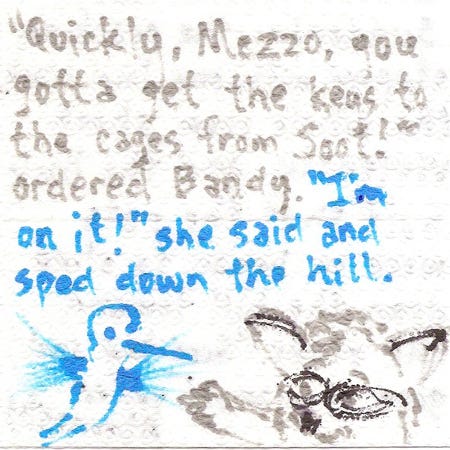 "Quickly, Mezzo, you
gotta get the keys to
the cages from Soot!"
ordered Bandy. "I'm
on it!" she said and
sped down the hill.